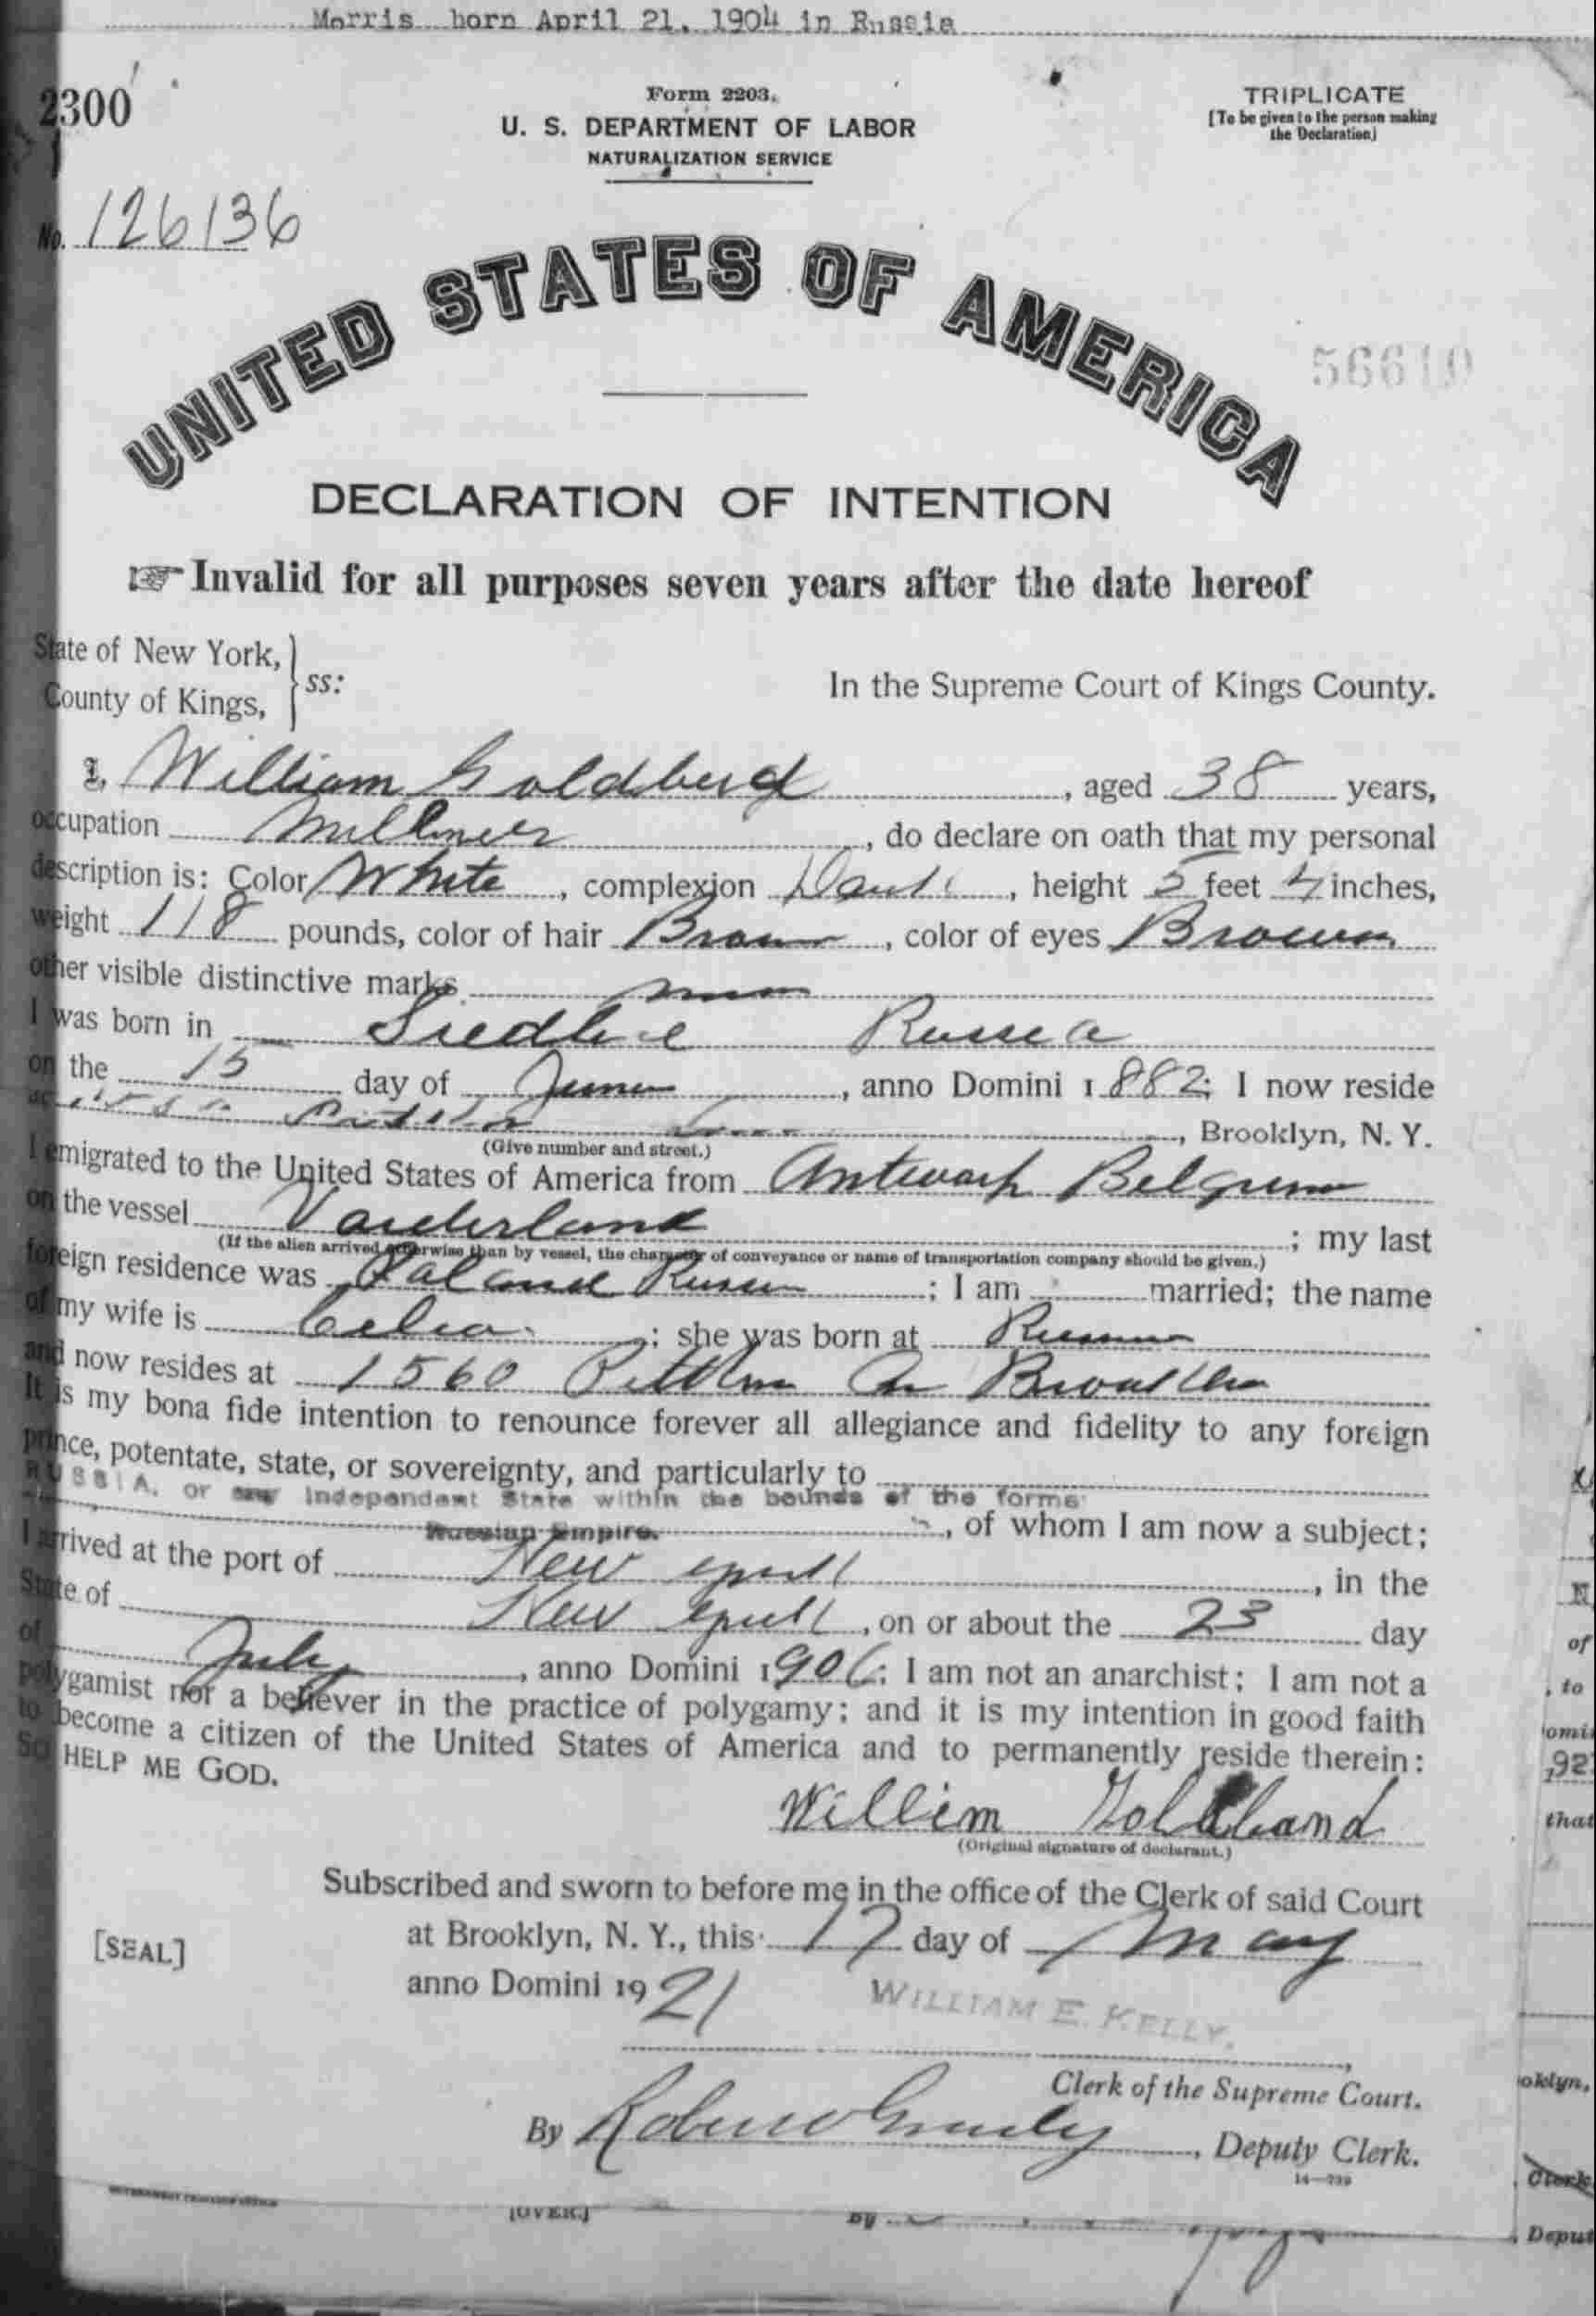 Morris born April 21, 1904 in Russia
2300
Form 2203.
U. S. DEPARTMENT OF LABOR
NATURALIZATION SERVICE
TRIPLICATE
[To be given to the person making
the Declaration]
No. 126136
UNITED STATES OF AMERICA
56610
DECLARATION OF INTENTION
☞ Invalid for all purposes seven years after the date hereof
State of New York,
County of Kings,
ss:
In the Supreme Court of Kings County.
I, William Goldband, aged 38 years,
occupation Milliner, do declare on oath that my personal
description is: Color White, complexion Dark, height 5 feet 4 inches,
weight 118 pounds, color of hair Brown, color of eyes Brown
other visible distinctive marks none
I was born in Siedlce Russia
on the 15 day of June, anno Domini 1882; I now reside
at 1560 Pitkin Ave, Brooklyn, N. Y.
(Give number and street.)
I emigrated to the United States of America from Antwerp Belgium
on the vessel Vaderland; my last
(If the alien arrived otherwise than by vessel, the character of conveyance or name of transportation company should be given.)
foreign residence was Poland Russia; I am married; the name
of my wife is Celia; she was born at Russia
and now resides at 1560 Pitkin Av Brooklyn
It is my bona fide intention to renounce forever all allegiance and fidelity to any foreign
prince, potentate, state, or sovereignty, and particularly to
RUSSIA. or any Independent State within the bounds of the former
Russian Empire., of whom I am now a subject;
I arrived at the port of New York, in the
State of New York, on or about the 23 day
of July, anno Domini 1906; I am not an anarchist; I am not a
polygamist nor a believer in the practice of polygamy; and it is my intention in good faith
to become a citizen of the United States of America and to permanently reside therein:
SO HELP ME GOD.
Willim Goldband
(Original signature of declarant.)
Subscribed and sworn to before me in the office of the Clerk of said Court
[SEAL]
at Brooklyn, N. Y., this 17 day of May
anno Domini 1921
WILLIAM E. KELLY.
Clerk of the Supreme Court.
By, Deputy Clerk.
14—739
GOVERNMENT PRINTING OFFICE
[OVER.]
By
N
of
, to
omi
192
that
oklyn,
Clerk
Deput